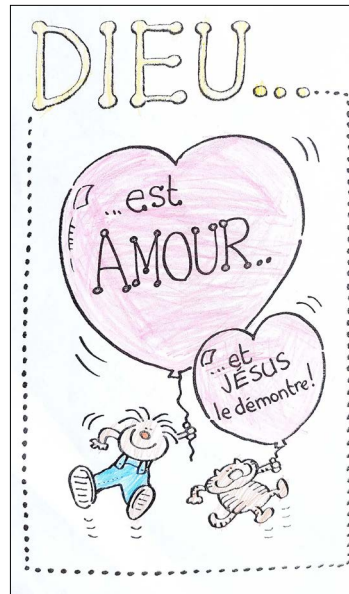 DIEU...
...est
AMOUR...
...et
JÉSUS
le démontre!